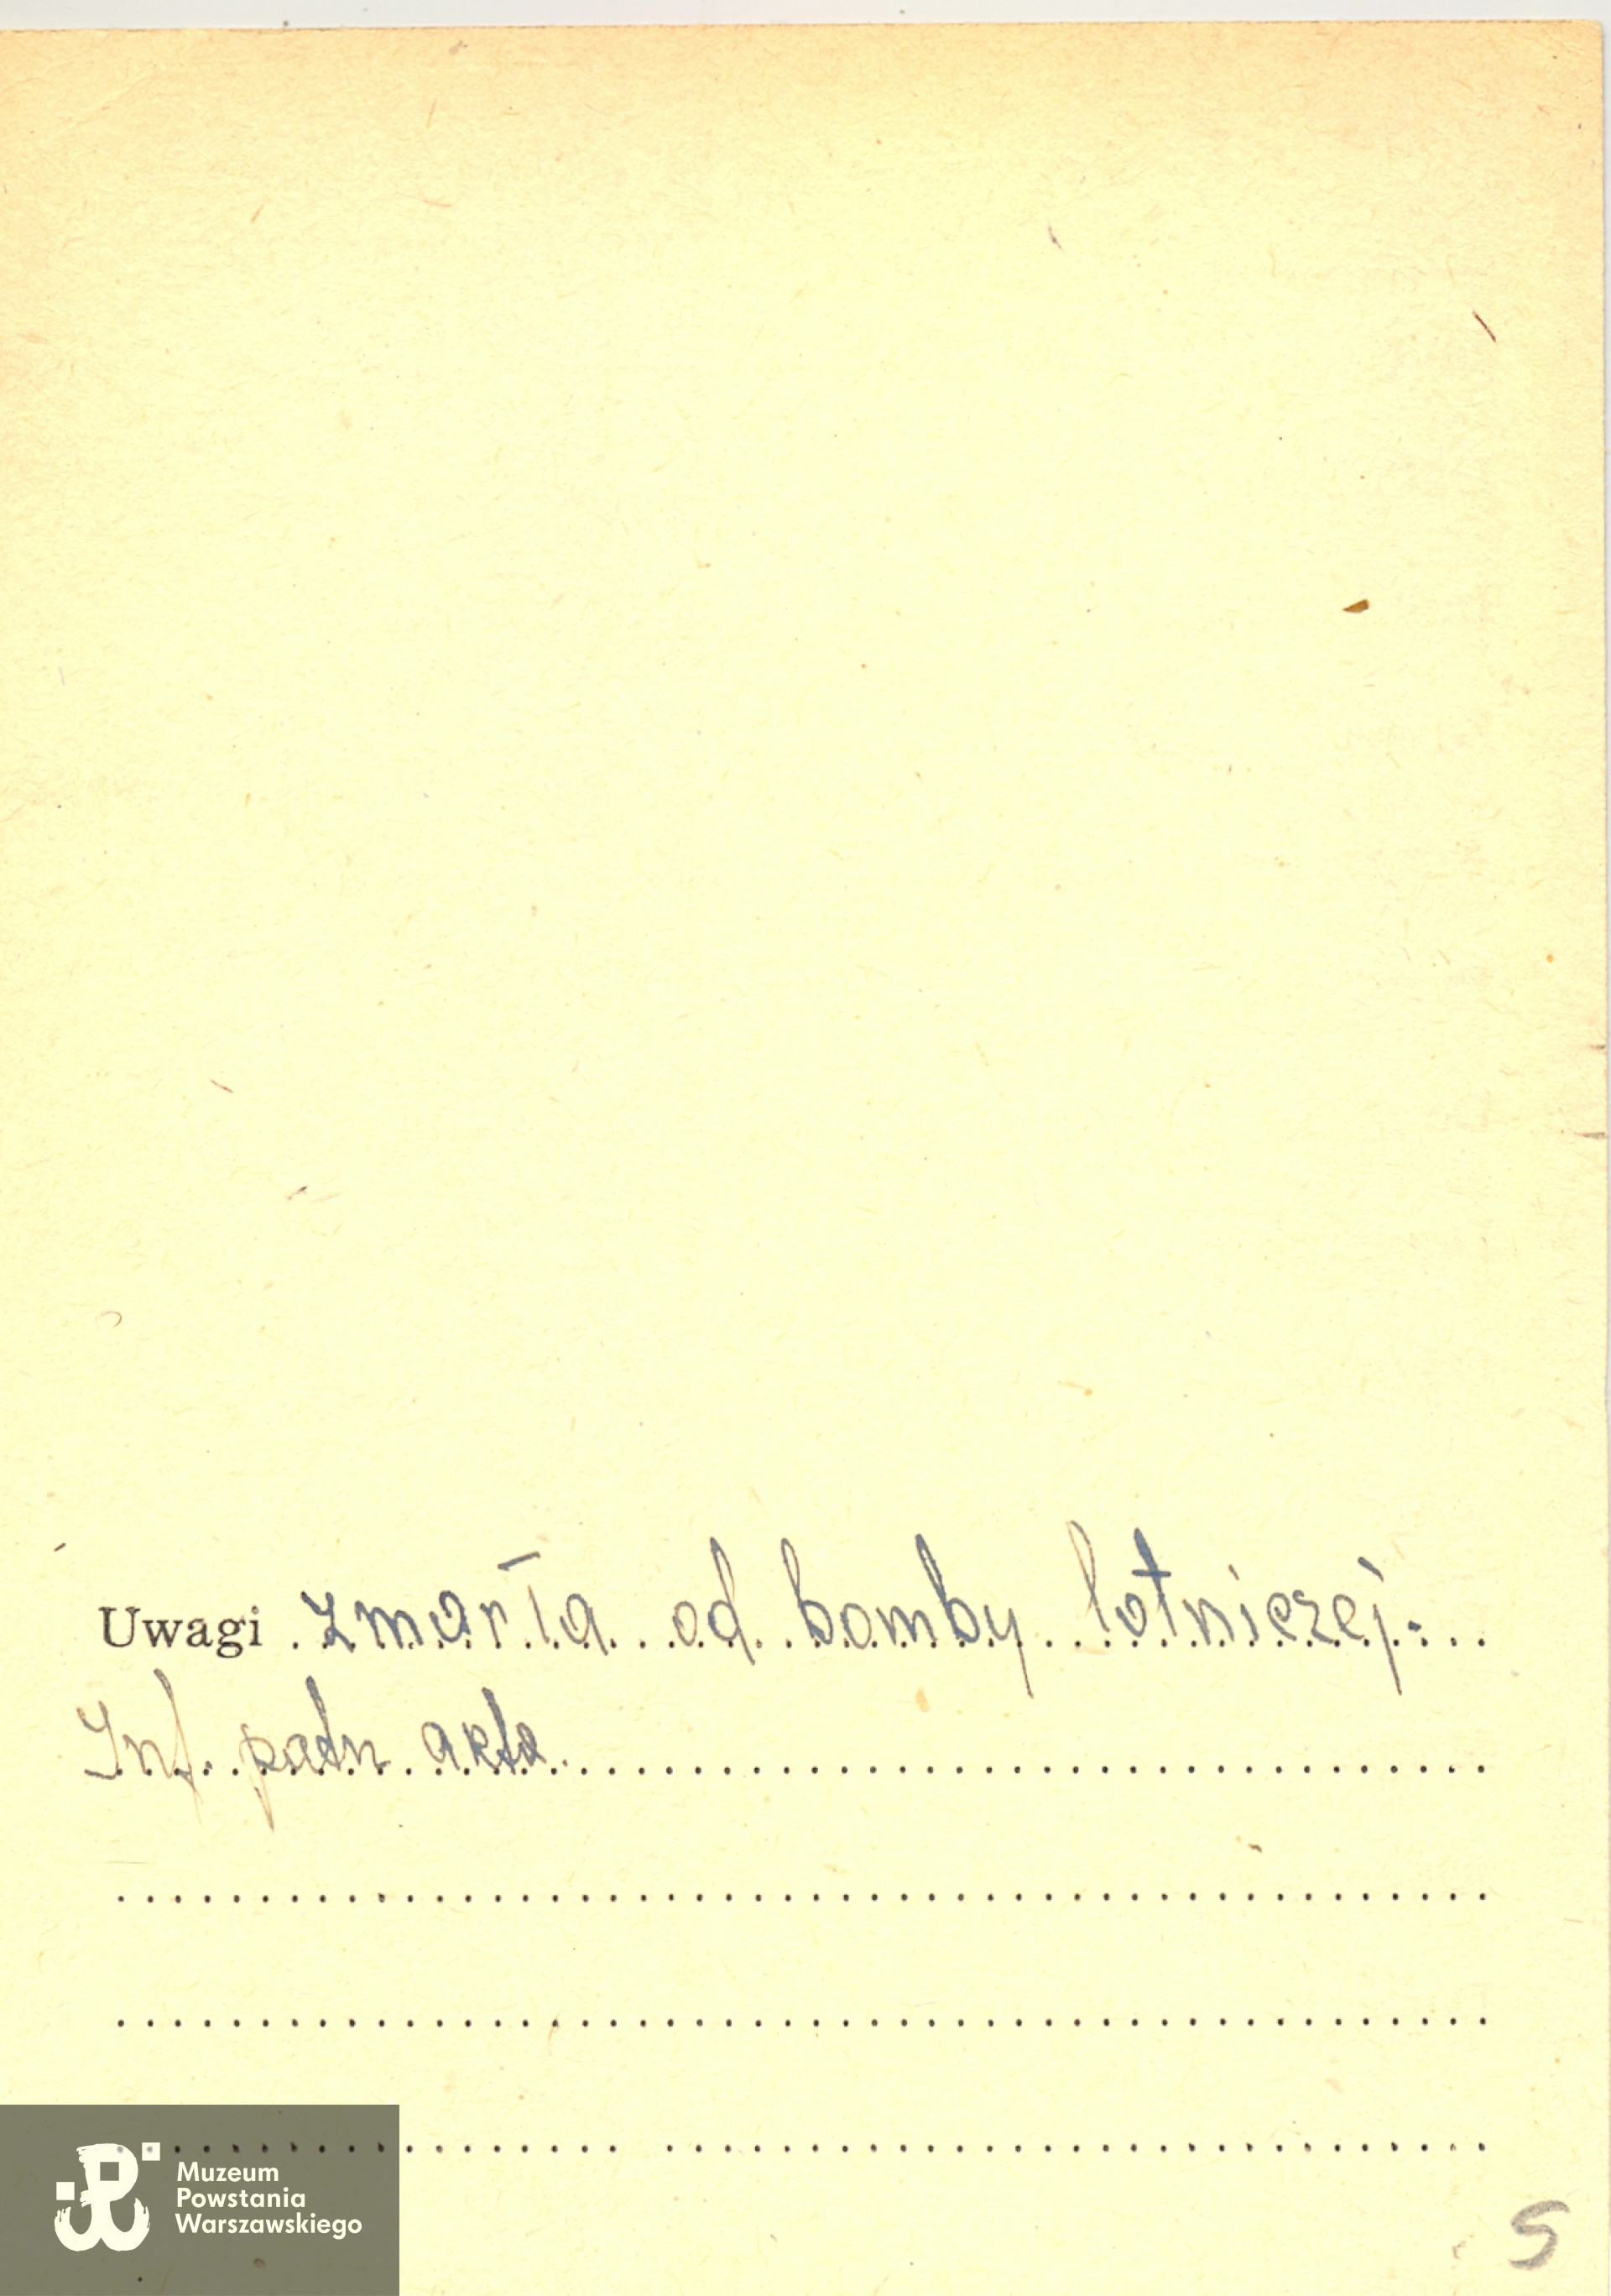 Uwagi zmarła od bomby lotniczej.
Inf. patrz akta
Muzeum
Powstania
Warszawskiego
S